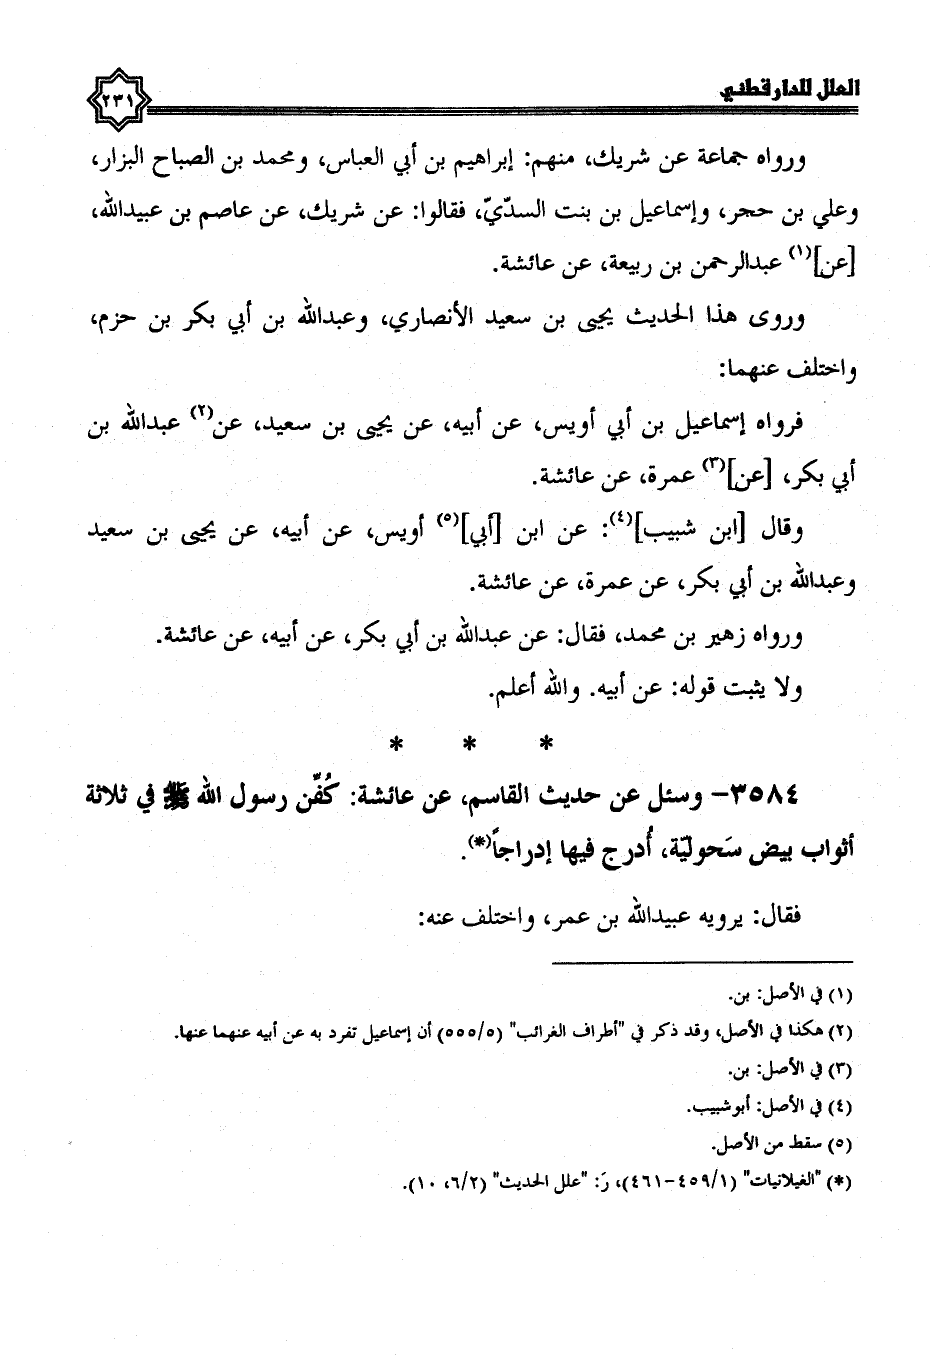 العلل للدارقطني
٢٣١
ورواه جماعة عن شريك، منهم: إبراهيم بن أبي العباس، ومحمد بن الصباح البزار،
وعلي بن حجر، وإسماعيل بن بنت السدّيّ، فقالوا: عن شريك، عن عاصم بن عبيدالله،
[عن](١) عبدالرحمن بن ربيعة، عن عائشة.
وروى هذا الحديث يحيى بن سعيد الأنصاري، وعبدالله بن أبي بكر بن حزم،
واختلف عنهما:
فرواه إسماعيل بن أبي أويس، عن أبيه، عن يحيى بن سعيد، عن(٢) عبدالله بن
أبي بكر، [عن](٣) عمرة، عن عائشة.
وقال [ابن شبيب](٤): عن ابن [أبي](٥) أويس، عن أبيه، عن يحيى بن سعيد
وعبدالله بن أبي بكر، عن عمرة، عن عائشة.
ورواه زهير بن محمد، فقال: عن عبدالله بن أبي بكر، عن أبيه، عن عائشة.
ولا يثبت قوله: عن أبيه. والله أعلم.
* * *
٣٥٨٤- وسئل عن حديث القاسم، عن عائشة: كُفِّن رسول الله ﷺ في ثلاثة
أثواب بيض سَحوليّة، أُدرج فيها إدراجاً(*).
فقال: يرويه عبيدالله بن عمر، واختلف عنه:
(١) في الأصل: بن.
(٢) هكذا في الأصل، وقد ذكر في "أطراف الغرائب" (٥/٥٥٥) أن إسماعيل تفرد به عن أبيه عنهما عنها.
(٣) في الأصل: بن.
(٤) في الأصل: أبوشبيب.
(٥) سقط من الأصل.
(*) "الغيلانيات" (١/٤٥٩-٤٦١)، رَ: "علل الحديث" (٢/٦، ١٠).